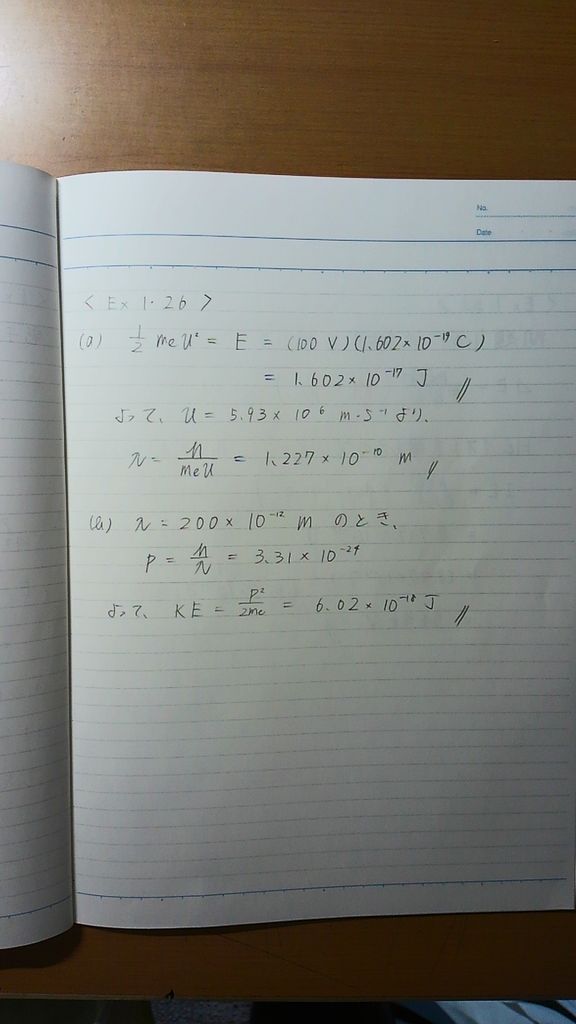 No.
Date
< Ex 1・26 >
(a) 1/2 meu² = E = (100 V)(1.602×10⁻¹⁹ C)
= 1.602×10⁻¹⁷ J //
よって、u = 5.93×10⁶ m・s⁻¹ より、
λ = h/meu = 1.227×10⁻¹⁰ m //
(b) λ = 200×10⁻¹² m のとき、
p = h/λ = 3.31×10⁻²⁴
よって、KE = p²/2me = 6.02×10⁻¹⁸ J //